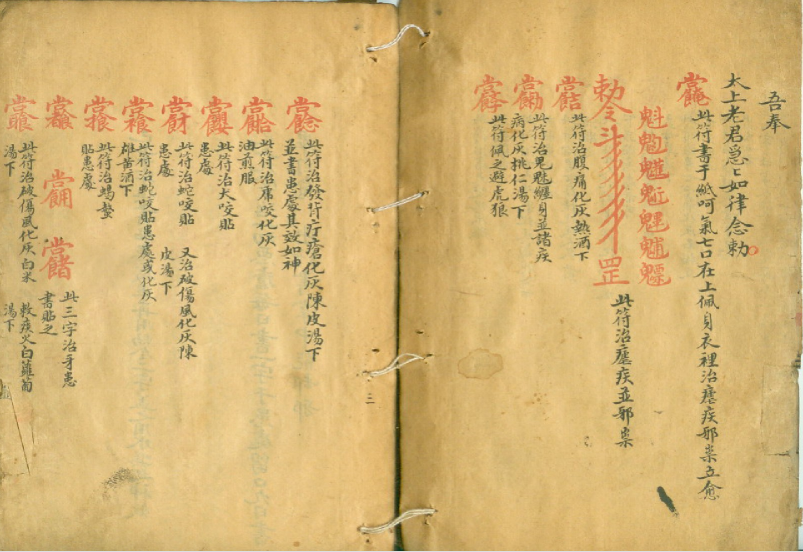 吾奉
太上老君急〻如律令勅
此符書于紙呵氣七口在上佩身衣裡治瘧疾邪祟立愈
魁
勅令斗罡
此符治瘧疾並邪祟
此符治腹痛化灰熱酒下
此符治鬼魅纏身並諸疾
病化灰桃仁湯下
此符佩之避虎狼
三
此符治發背疔瘡化灰陳皮湯下
並書患處其效如神
此符治虎咬化灰
油煎服
此符治犬咬貼
患處
此符治蛇咬貼 又治破傷風化灰陳
患處 皮湯下
此符治蛇咬貼患處或化灰
雄黃酒下
此符治蝎螫
貼患處
此三字治牙患
書貼之
此符治破傷風化灰白米 救痰火白蘿蔔
湯下 湯下